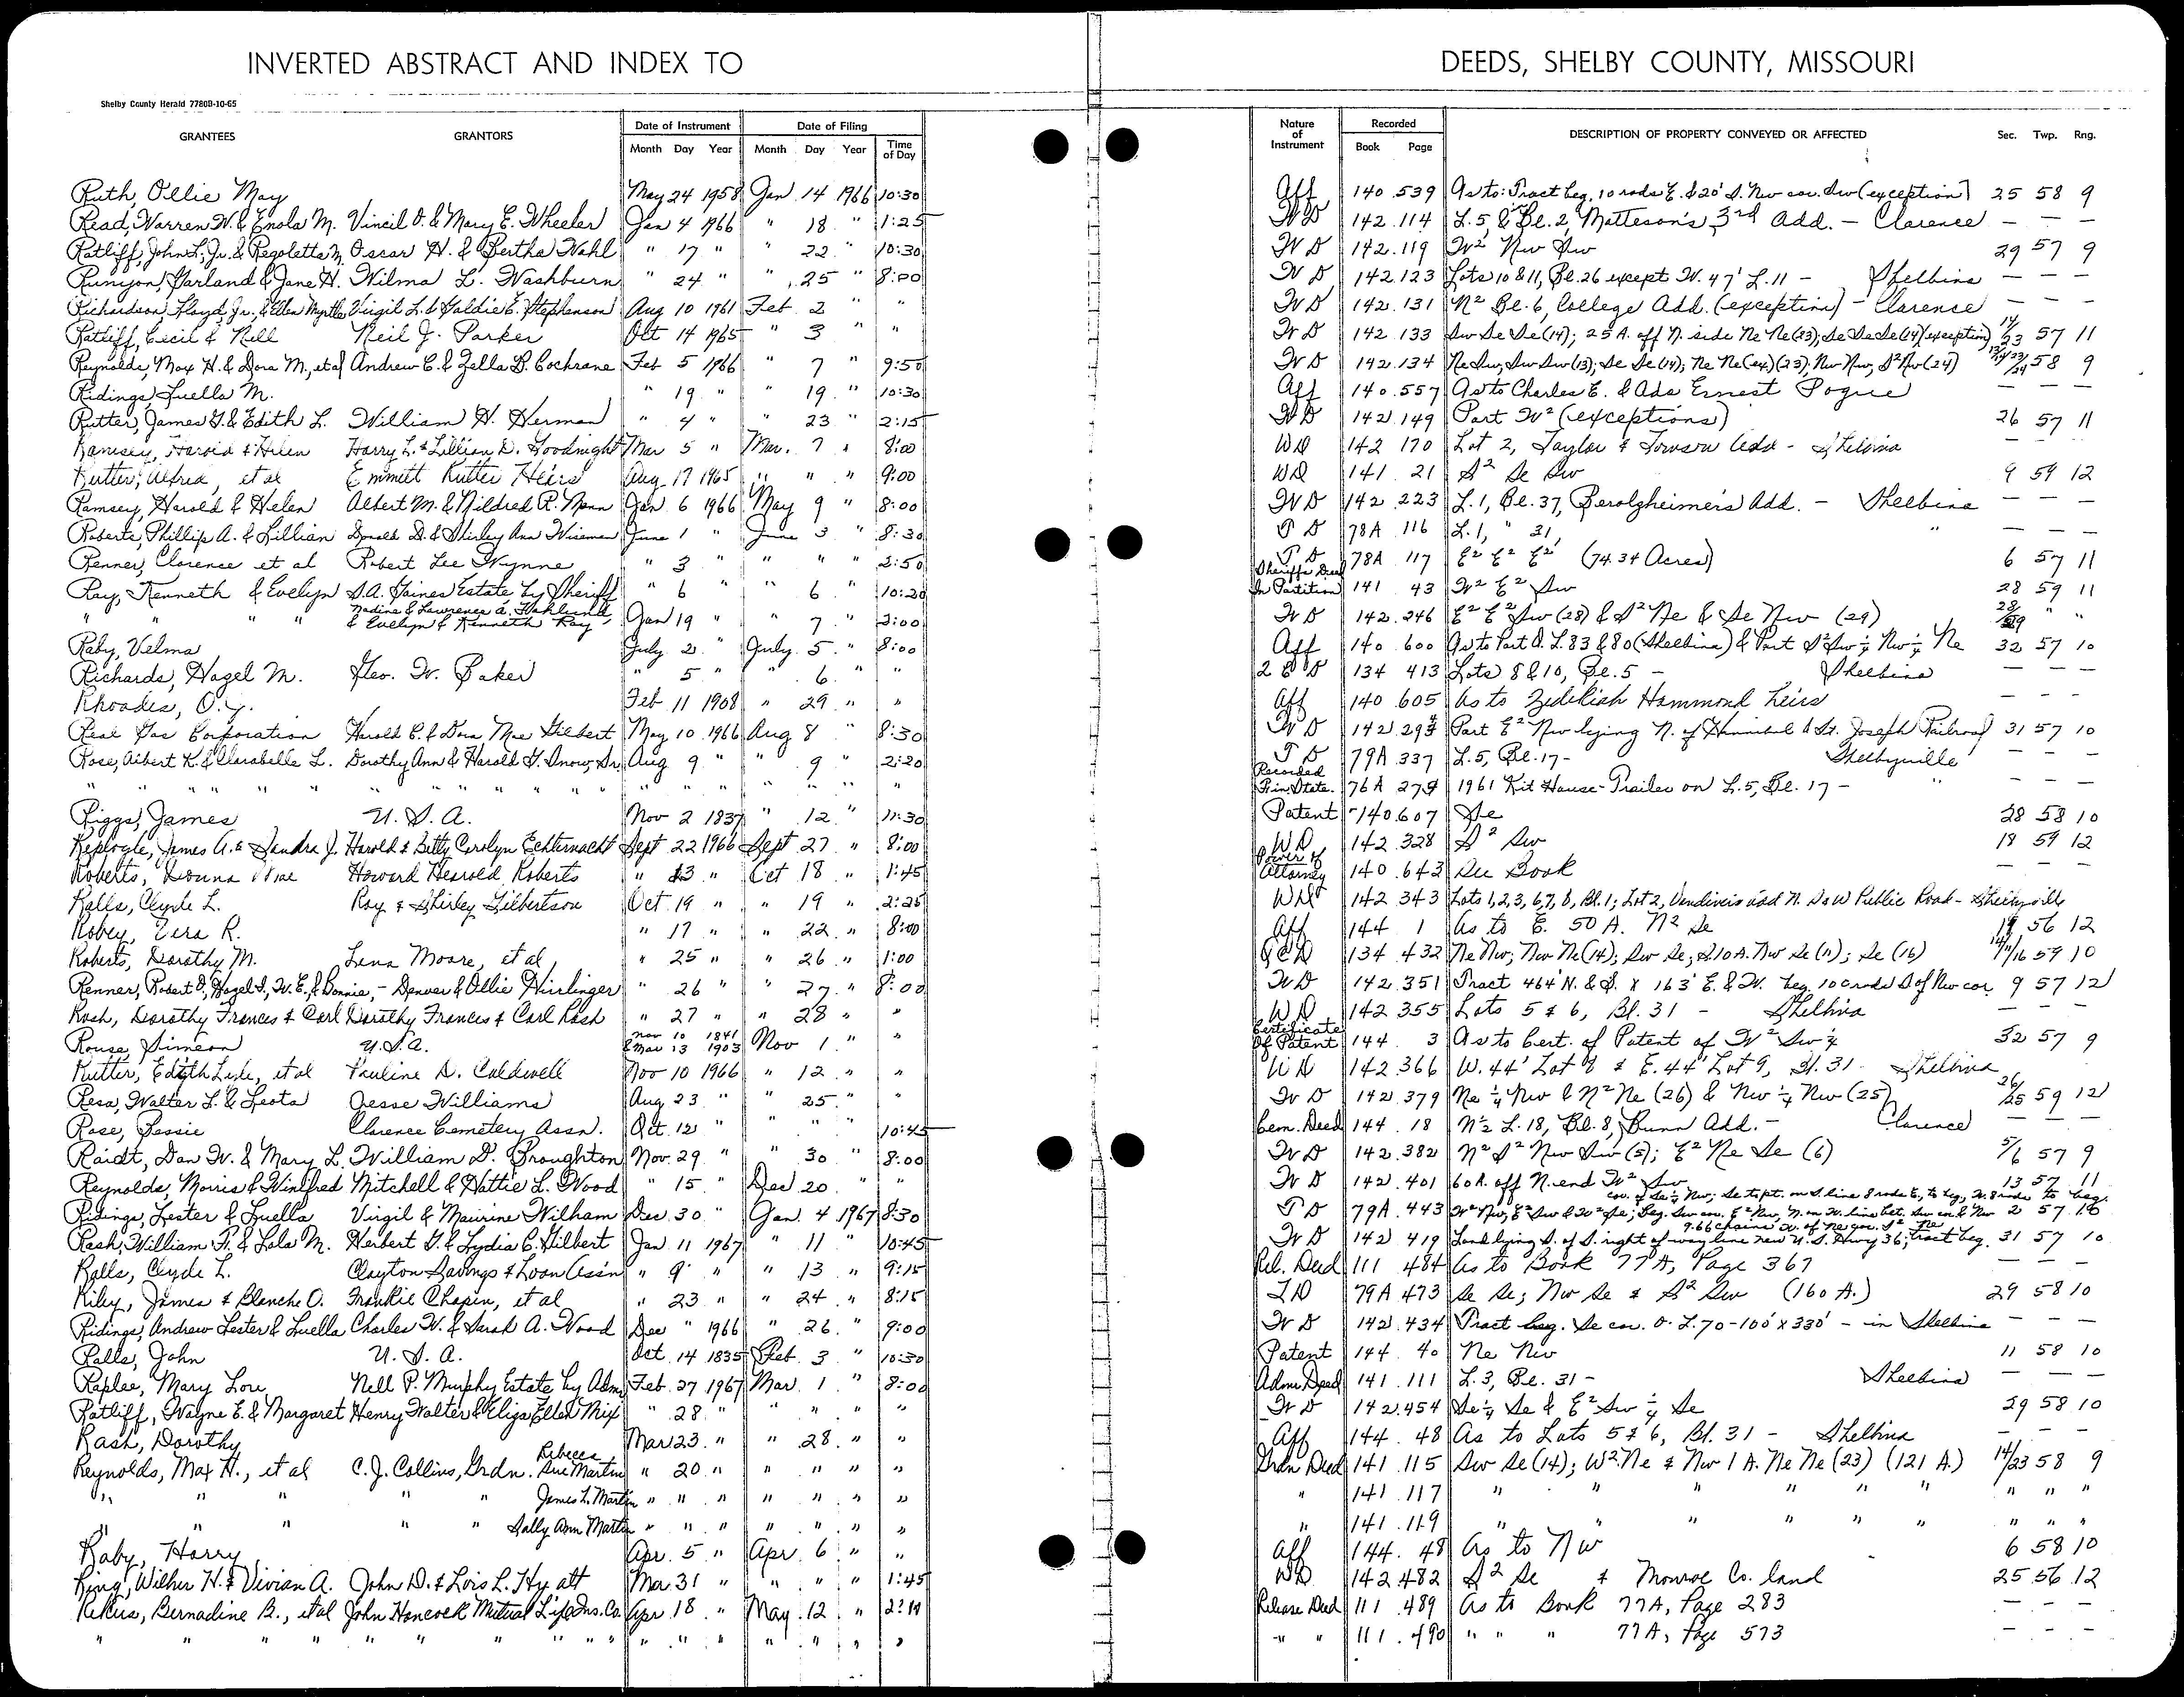 INVERTED ABSTRACT AND INDEX TO DEEDS, SHELBY COUNTY, MISSOURI
Shelby County Herald 7780B-10-65
GRANTEES GRANTORS Date of Instrument Month Day Year Date of Filing Month Day Year Time of Day Nature of Instrument Recorded Book Page DESCRIPTION OF PROPERTY CONVEYED OR AFFECTED Sec. Twp. Rng.
Ruth, Ollie May May 24 1958 Jan 14 1966 10:30 Aff 140 539 As to: Tract beg. 10 rods E. & 20' S. Nw cor. Sw (exception) 25 58 9
Read, Warren W. & Enola M. Vincil O. & Mary E. Wheeler Jan 4 1966 " 18 " 1:25 W D 142 114 L. 5, Bl. 2, Matteson's 3rd Add. - Clarence — — —
Ratliff, John L. Jr. & Regoletta M. Oscar H. & Bertha Wahl " 17 " " 22 " 10:30 W D 142 119 W² Nw Sw 29 57 9
Runyon, Garland & Jane H. Wilma L. Washburn " 24 " " 25 " 8:00 W D 142 123 Lots 10 & 11, Bl. 26 except W. 47' L. 11 - Shelbina — — —
Richardson, Floyd, Jr., & Ellen Myrtle Virgil L. & Goldie E. Stephenson Aug 10 1961 Feb 2 " " W D 142 131 N² Bl. 6, College Add. (exception) - Clarence — — —
Ratliff, Cecil & Nell Neil J. Parker Oct 14 1965 " 3 " " W D 142 133 Sw Se Se (14); 25 A. off N. side Ne Ne (23); Se Se Se (14) (exception) 14/23 57 11
Reynolds, Max H. & Dora M., et al Andrew C. & Zella B. Cochrane Feb 5 1966 " 7 " 9:50 W D 142 134 Ne Sw, Sw Sw (13); Se Se (14); Ne Ne (ex) (23); Nw Nw, S² Nw (24) 58 9
Ridings, Luella M. " 19 " " 19 " 10:30 Aff 140 557 As to Charles E. & Ada Ernest Pogue — — —
Rutter, James G. & Edith L. William H. Herman " 4 " " 23 " 2:15 W D 142 149 Part W² (exceptions) 26 57 11
Ramsey, Harold & Helen Harry L. & Lillian D. Goodnight Mar 5 " Mar. 7 " 8:00 WD 142 170 Lot 2, Taylor & Towson Add - Shelbina —
Rutter, Alfred, et al Emmitt Rutter Heirs Aug 17 1965 " " " 9:00 WD 141 21 S² Se Sw 9 59 12
Ramsey, Harold & Helen Albert M. & Mildred R. Mann Jan 6 1966 May 9 " 8:00 W D 142 223 L. 1, Bl. 37, Berolzheimer's Add. - Shelbina — — —
Roberts, Phillip A. & Lillian Donald D. & Shirley Ann Wiseman June 1 " June 3 " 8:30 T D 78A 116 L. 1, " 31, " — — —
Renner, Clarence et al Robert Lee Wynne " 3 " " " " 2:50 T D 78A 117 E² E² E² (74.34 Acres) 6 57 11
Ray, Kenneth & Evelyn S.A. Gaines Estate by Sheriff " 6 " " 6 " 10:20 Sheriffs Deed In Partition 141 43 W² E² Sw 28 59 11
" " " Nadine & Lawrence A. Wohlund, & Evelyn & Kenneth Ray Jan 19 " " 7 " 3:00 W D 142 246 E² E² Sw (28) & S² Ne & Se Nw (29) 28/29 " "
Raby, Velma July 2 " July 5 " 8:00 Aff 140 600 As to Part O. L. 83 & 80 (Shelbina) & Part S² Sw ¼ Nw ¼ Ne 32 57 10
Richards, Hazel M. Geo. W. Baker " 5 " " 6 " " 2 C D 134 413 Lots 8 & 10, Bl. 5 - Shelbina — — —
Rhoades, O.J. Feb 11 1908 " 29 " " Aff 140 605 As to Zedekiah Hammond heirs — — —
Real Gas Corporation Harold C. & Dora Mae Gilbert May 10 1966 Aug 8 " 8:30 W D 142 294 Part E² Nw lying N. of Hannibal & St. Joseph Railroad 31 57 10
Rose, Albert K. & Clarabelle L. Dorothy Ann & Harold G. Snow, Sr. Aug 9 " " 9 " 2:20 T D 79A 337 L. 5, Bl. 17 - Shelbyville — — —
" " " " " " " " " " " " Recorded Fin. State. 76A 279 1961 Kit House-Trailer on L. 5, Bl. 17 - " — — —
Riggs, James U. S. A. Nov 2 1837 " 12 " 11:30 Patent 140 607 Se 28 58 10
Replogle, James A. & Sandra J. Harold & Betty Carolyn Echternacht Sept 22 1966 Sept 27 " 8:00 WD 142 328 S² Sw 18 59 12
Roberts, Donna Mae Howard Hearold Roberts " 13 " Oct 18 " 1:45 Power of Attorney 140 643 See Book — — —
Ralls, Clyde L. Roy & Shirley Gilbertson Oct 19 " " 19 " 2:25 WD 142 343 Lots 1, 2, 3, 6, 7, 8, Bl. 1; Lot 2, Vandivers add N. S & W Public Road - Shelbyville
Robey, Vera R. " 17 " " 22 " 8:00 Aff 144 1 As to E. 50 A. N² Se 19 56 12
Roberts, Dorothy M. Lena Moore, et al " 25 " " 26 " 1:00 QCD 134 432 Ne Nw; Nw Ne (14); Sw Se; S. 10 A. Nw Se (11); Se (16) 14/11/16 59 10
Renner, Robert D., Hazel I., W. E., & Bonnie, - Denver & Ollie Hirlinger " 26 " " 27 " 8:00 W D 142 351 Tract 464' N. & S. x 163' E. & W. beg. 10 rods S of Nw cor 9 57 12
Rash, Dorothy Frances & Carl Dorothy Frances & Carl Rash " 27 " " 28 " " WD 142 355 Lots 5 & 6, Bl. 31 - Shelbina — — —
Rouse, Simeon U.S.A. Nov 10 1841 & Mar 13 1903 Nov 1 " " Certificate Of Patent 144 3 As to Cert. of Patent of W² Sw ¼ 32 57 9
Rutter, Edyth Lisle, et al Pauline D. Caldwell Nov 10 1966 " 12 " " WD 142 366 W. 44' Lot 8 & E. 44' Lot 9, Bl. 31 - Shelbina
Resa, Walter L. & Leota Jesse Williams Aug 23 " " 25 " " W D 142 379 Ne ¼ Nw & N² Ne (26) & Nw ¼ Nw (25) 26/25 59 12
Rose, Bessie Clarence Cemetery Assn. Oct. 12 " " " " 10:45 Cem. Deed 144 18 N½ L. 18, Bl. 8, Bunn Add. - Clarence — — —
Raidt, Dan W. & Mary L. William D. Broughton Nov. 29 " " 30 " 8:00 W D 142 382 N² S² Nw Sw (5); E² Ne Se (6) 5/6 57 9
Reynolds, Morris & Winifred Mitchell & Hattie L. Wood " 15 " Dec 20 " " W D 142 401 60 A. off N. end W² Sw 13 57 11
Ridings, Lester & Luella Virgil & Maurine Wilham Dec. 30 " Jan. 4 1967 8:30 T D 79A 443 2 57 10
Rash, William F. & Lola M. Herbert G. & Lydia C. Gilbert Jan 11 1967 " 11 " 10:45 W D 142 419 Land lying S. of S. right of way line new U. S. Hwy 36; tract beg. 9.66 chains W. of Ne cor. S² Ne 31 57 10
Ralls, Clyde L. Clayton Savings & Loan Ass'n " 9 " " 13 " 9:15 Rel. Deed 111 484 As to Book 77A, Page 367 — — —
Riley, James & Blanche O. Frankie Chapin, et al " 23 " " 24 " 8:15 TD 79A 473 Se Se; Nw Se & S² Sw (160 A.) 29 58 10
Ridings, Andrew Lester & Luella Charles W. & Sarah A. Wood Dec " 1966 " 26 " 9:00 W D 142 434 Tract beg. Se cor. O. L. 70 - 100' x 330' - in Shelbina — — —
Ralls, John U. S. A. Oct. 14 1835 Feb. 3 " 10:30 Patent 144 40 Ne Nw 11 58 10
Raplee, Mary Lou Nell P. Murphy Estate by Adm Feb. 27 1967 Mar. 1 " 8:00 Adm Deed 141 111 L. 3, Bl. 31 - Shelbina — — —
Ratliff, Wayne E. & Margaret Henry Walter & Eliza Ellen Mix " 28 " " " " " W D 142 454 Se ¼ Se & E² Sw ¼ Se 29 58 10
Rash, Dorothy Mar 23 " " 28 " " Aff 144 48 As to Lots 5 & 6, Bl. 31 - Shelbina — — —
Reynolds, Max H., et al C. J. Collins, Grdn. Rebecca Sue Martin " 20 " " " " " Grdn Deed 141 115 Sw Se (14); W² Ne & Nw 1 A. Ne Ne (23) (121 A.) 14/23 58 9
" " " " " James L. Martin " " " " " " " " 141 117 " " " " " " " " "
" " " " " Sally Ann Martin " " " " " " " " 141 119 " " " " " " " " "
Raby, Harry Apr. 5 " Apr. 6 " " Aff 144 48 As to Nw 6 58 10
Ring, Wilher H. & Vivian A. John D. & Lois L. Hyatt Mar 31 " " " " 1:45 WD 142 482 S² Se & Monroe Co. land 25 56 12
Rekus, Bernadine B., et al John Hancock Mutual Life Ins. Co. Apr 18 " May 12 " 2:19 Release Deed 111 489 As to Book 77A, Page 283 — — —
" " " " " " " " " " " " " " " " " " 111 490 " " " 77A, Page 573 — — —